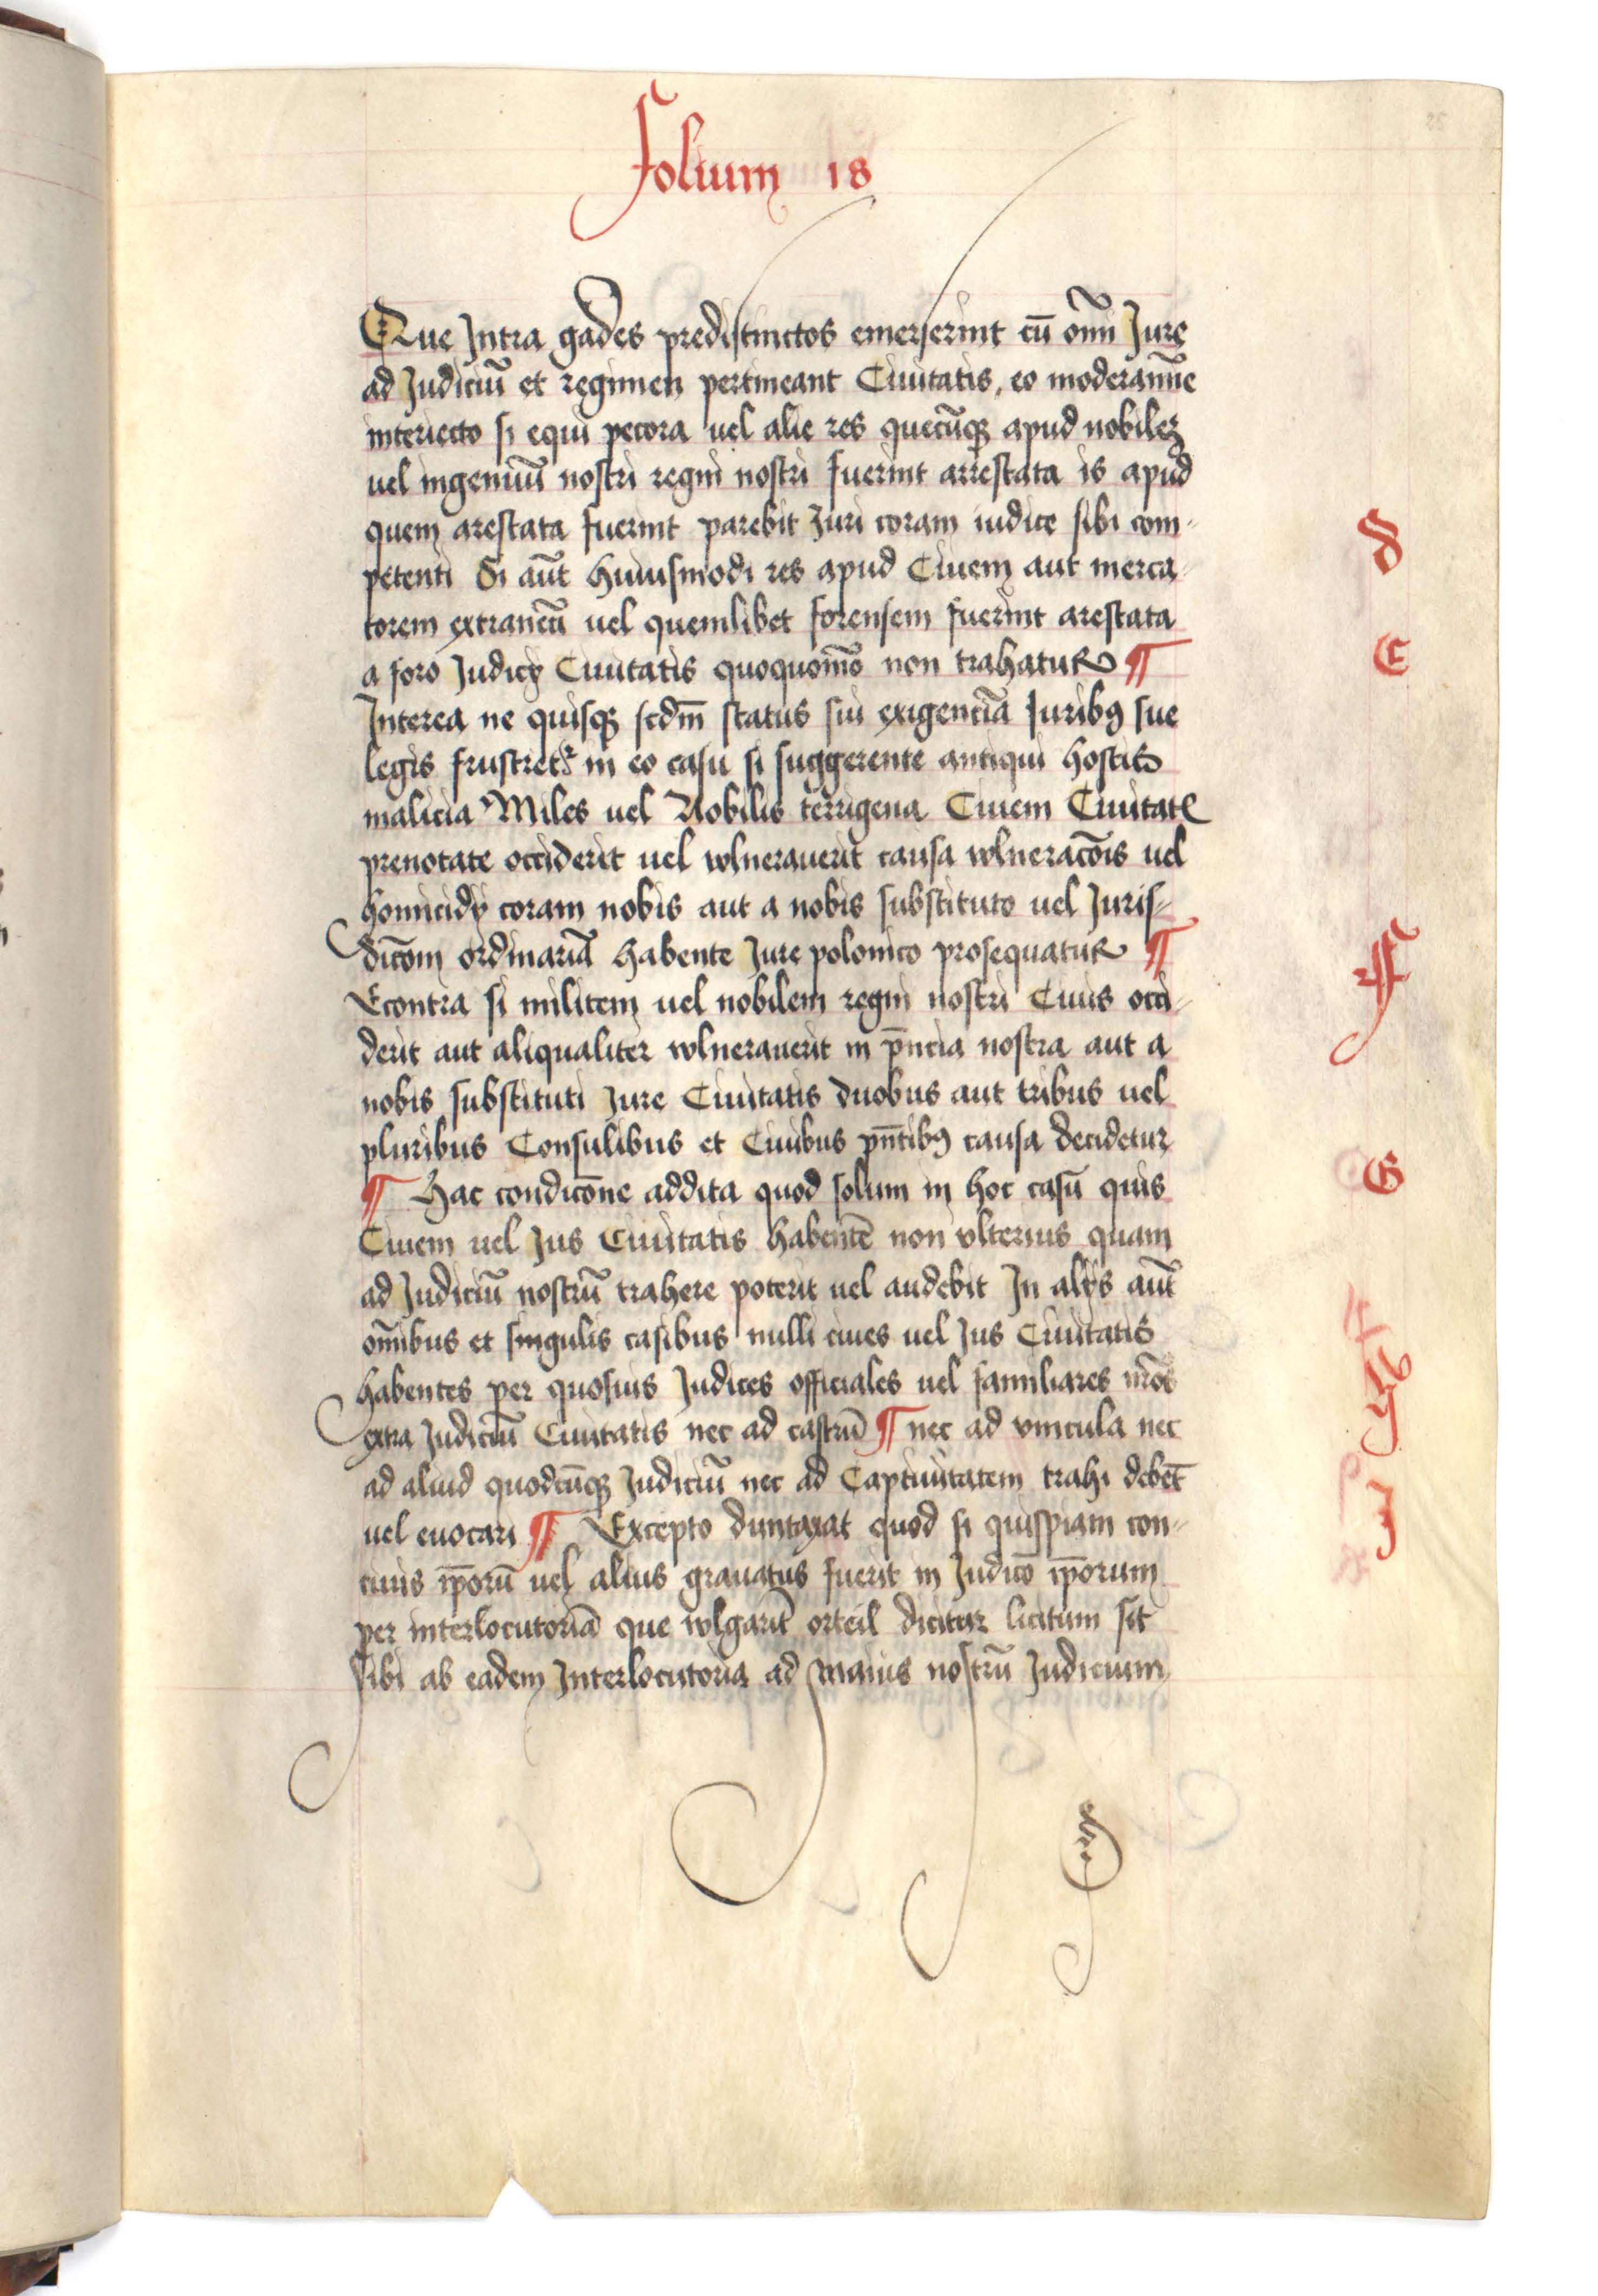 Folium 18
Que Intra gades predistinctos emerserint cū om̄i Jure
ad Judiciū et regimen pertineant Ciuitatis, eo moderamīe
interiecto si equi pecora uel alie res quecūqꝫ apud nobilez
uel ingenuū nostri regni nostri fuerint arrestata is apud
quem arestata fuerint parebit Juri coram iudice sibi com-
petenti Si aūt huiusmodi res apud Ciuem aut merca-
torem extraneū uel quemlibet forensem fuerint arestata
a foro Judicÿ Ciuitatis quoquomō non trahatur ¶
Interea ne quisqꝫ scdm̄ status sui exigentiā Juribꝯ sue
legis frustretr in eo casu si suggerente antiqui hostis
malicia Miles uel Nobilis terrigena Ciuem Ciuitatꝭ
prenotate occiderit uel wlnerauerit causa wlneracōis uel
homicidÿ coram nobis aut a nobis substituto uel Juris-
dicōm ordinariā habente Jure polonico prosequatur ¶
Econtra si militem uel nobilem regni nostri Ciuis occi-
derit aut aliqualiter wlnerauerit in pn̄cia nostra aut a
nobis substituti Jure Ciuitatis duobus aut tribus uel
pluribus Consulibus et Ciuibus pn̄tibꝯ causa decidetur
¶ Hac condicōne addita quod solum in hoc casū quis
Ciuem uel Jus Ciuitatis habentē non vlterius quam
ad Judiciū nostrū trahere poterit uel audebit In alÿs aūt
om̄ibus et singulis casibus nulli ciues uel Jus Ciuitatis
habentes per quosuis Judices officiales uel familiares nr̄os
extra Judiciū Ciuitatis nec ad castrū ¶ nec ad vincula nec
ad aliud quodcūqꝫ Judiciū nec ad Captiuitatem trahi debēt
uel euocari ¶ Excepto duntaxat quod si quispiam con-
ciuis ip̄orū uel alius grauatus fuerit in Judicō ip̄orum
per interlocutoriā que wlgarit̄ orteil dicitur licitum sit
sibi ab eadem Interlocutoria ad Maius nostrū Judicium
D
E
F
G
H
J